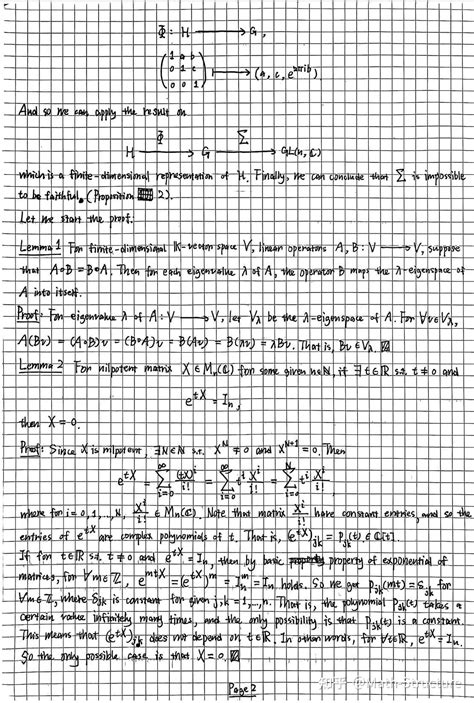 Φ: H ⟶ G,
( 1 a b
0 1 c
0 0 1 ) ⟼ (a, c, e^{2πib})
And so we can apply the result on
H —Φ→ G —Σ→ GL(n, ℂ)
which is a finite-dimensional representation of H. Finally, we can conclude that Σ is impossible
to be faithful. (Proposition 2).
Let me start the proof.
Lemma 1 For finite-dimensional K-vector space V, linear operators A, B: V ⟶ V, suppose
that A∘B = B∘A. Then for each eigenvalue λ of A, the operator B maps the λ-eigenspace of
A into itself.
Proof: For eigenvalue λ of A: V ⟶ V, let V_λ be the λ-eigenspace of A. For ∀v∈V_λ,
A(Bv) = (A∘B)v = (B∘A)v = B(Av) = B(λv) = λBv. That is, Bv∈V_λ.
Lemma 2 For nilpotent matrix X∈M_n(ℂ) for some given n∈ℕ, if ∃t∈ℝ s.t. t≠0 and
e^{tX} = I_n,
then X = 0.
Proof: Since X is nilpotent, ∃N∈ℕ s.t. X^N ≠ 0 and X^{N+1} = 0. Then
e^{tX} = Σ_{i=0}^∞ (tX)^i/i! = Σ_{i=0}^∞ t^i X^i/i! = Σ_{i=0}^N t^i X^i/i!,
where for i=0,1,..,N, X^i/i! ∈ M_n(ℂ). Note that matrix X^i/i! have constant entries, and so the
entries of e^{tX} are complex polynomials of t. That is, (e^{tX})_{jk} = P_{jk}(t) ∈ ℂ[t].
If for t∈ℝ s.t. t≠0 and e^{tX} = I_n, then by basic property of exponential of
matrices, for ∀m∈ℤ, e^{mtX} = (e^{tX})^m = I_n^m = I_n holds. So we get P_{jk}(mt) = δ_{jk} for
∀m∈ℤ, where δ_{jk} is constant for given j,k = 1,..,n. That is, the polynomial P_{jk}(t) takes a
certain value infinitely many times, and the only possibility is that P_{jk}(t) is a constant.
This means that (e^{tX})_{jk} does not depend on t∈ℝ. In other words, for ∀t∈ℝ, e^{tX} = I_n.
So the only possible case is that X = 0.
Page 2
知乎 @Math-Structure